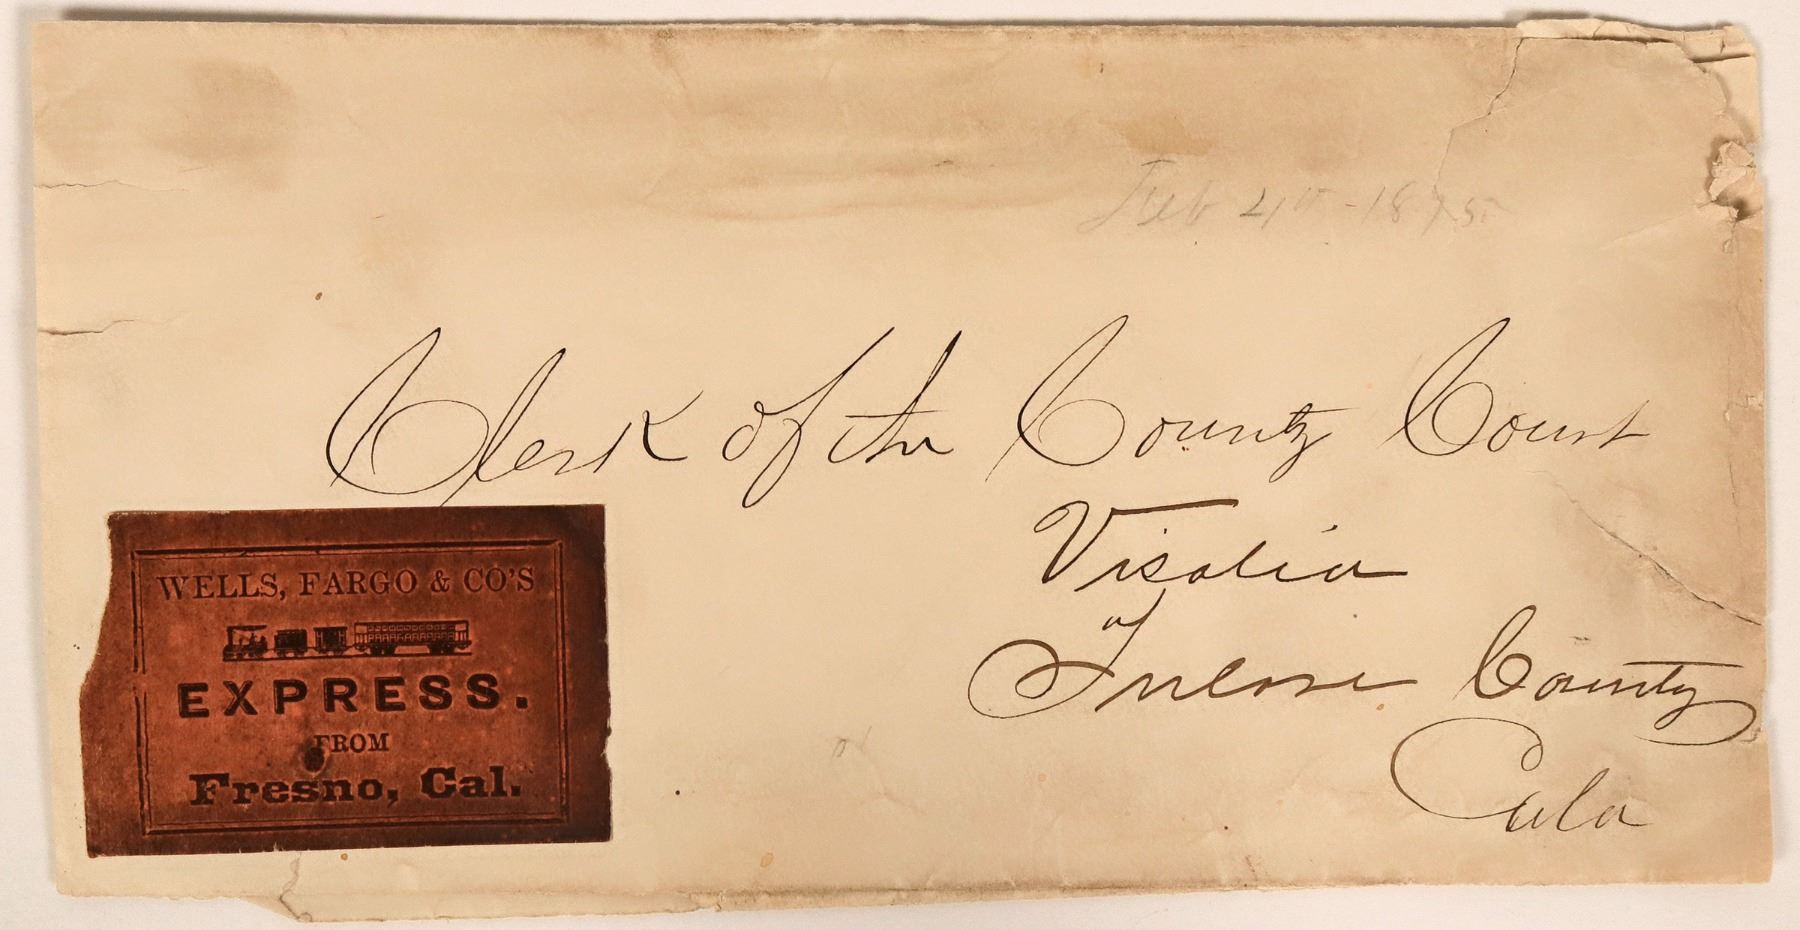 Feb 4th - 1875
Clerk of the County Court
Visalia
of
Tulare County
Cala
WELLS, FARGO & CO'S
EXPRESS.
FROM
Fresno, Cal.